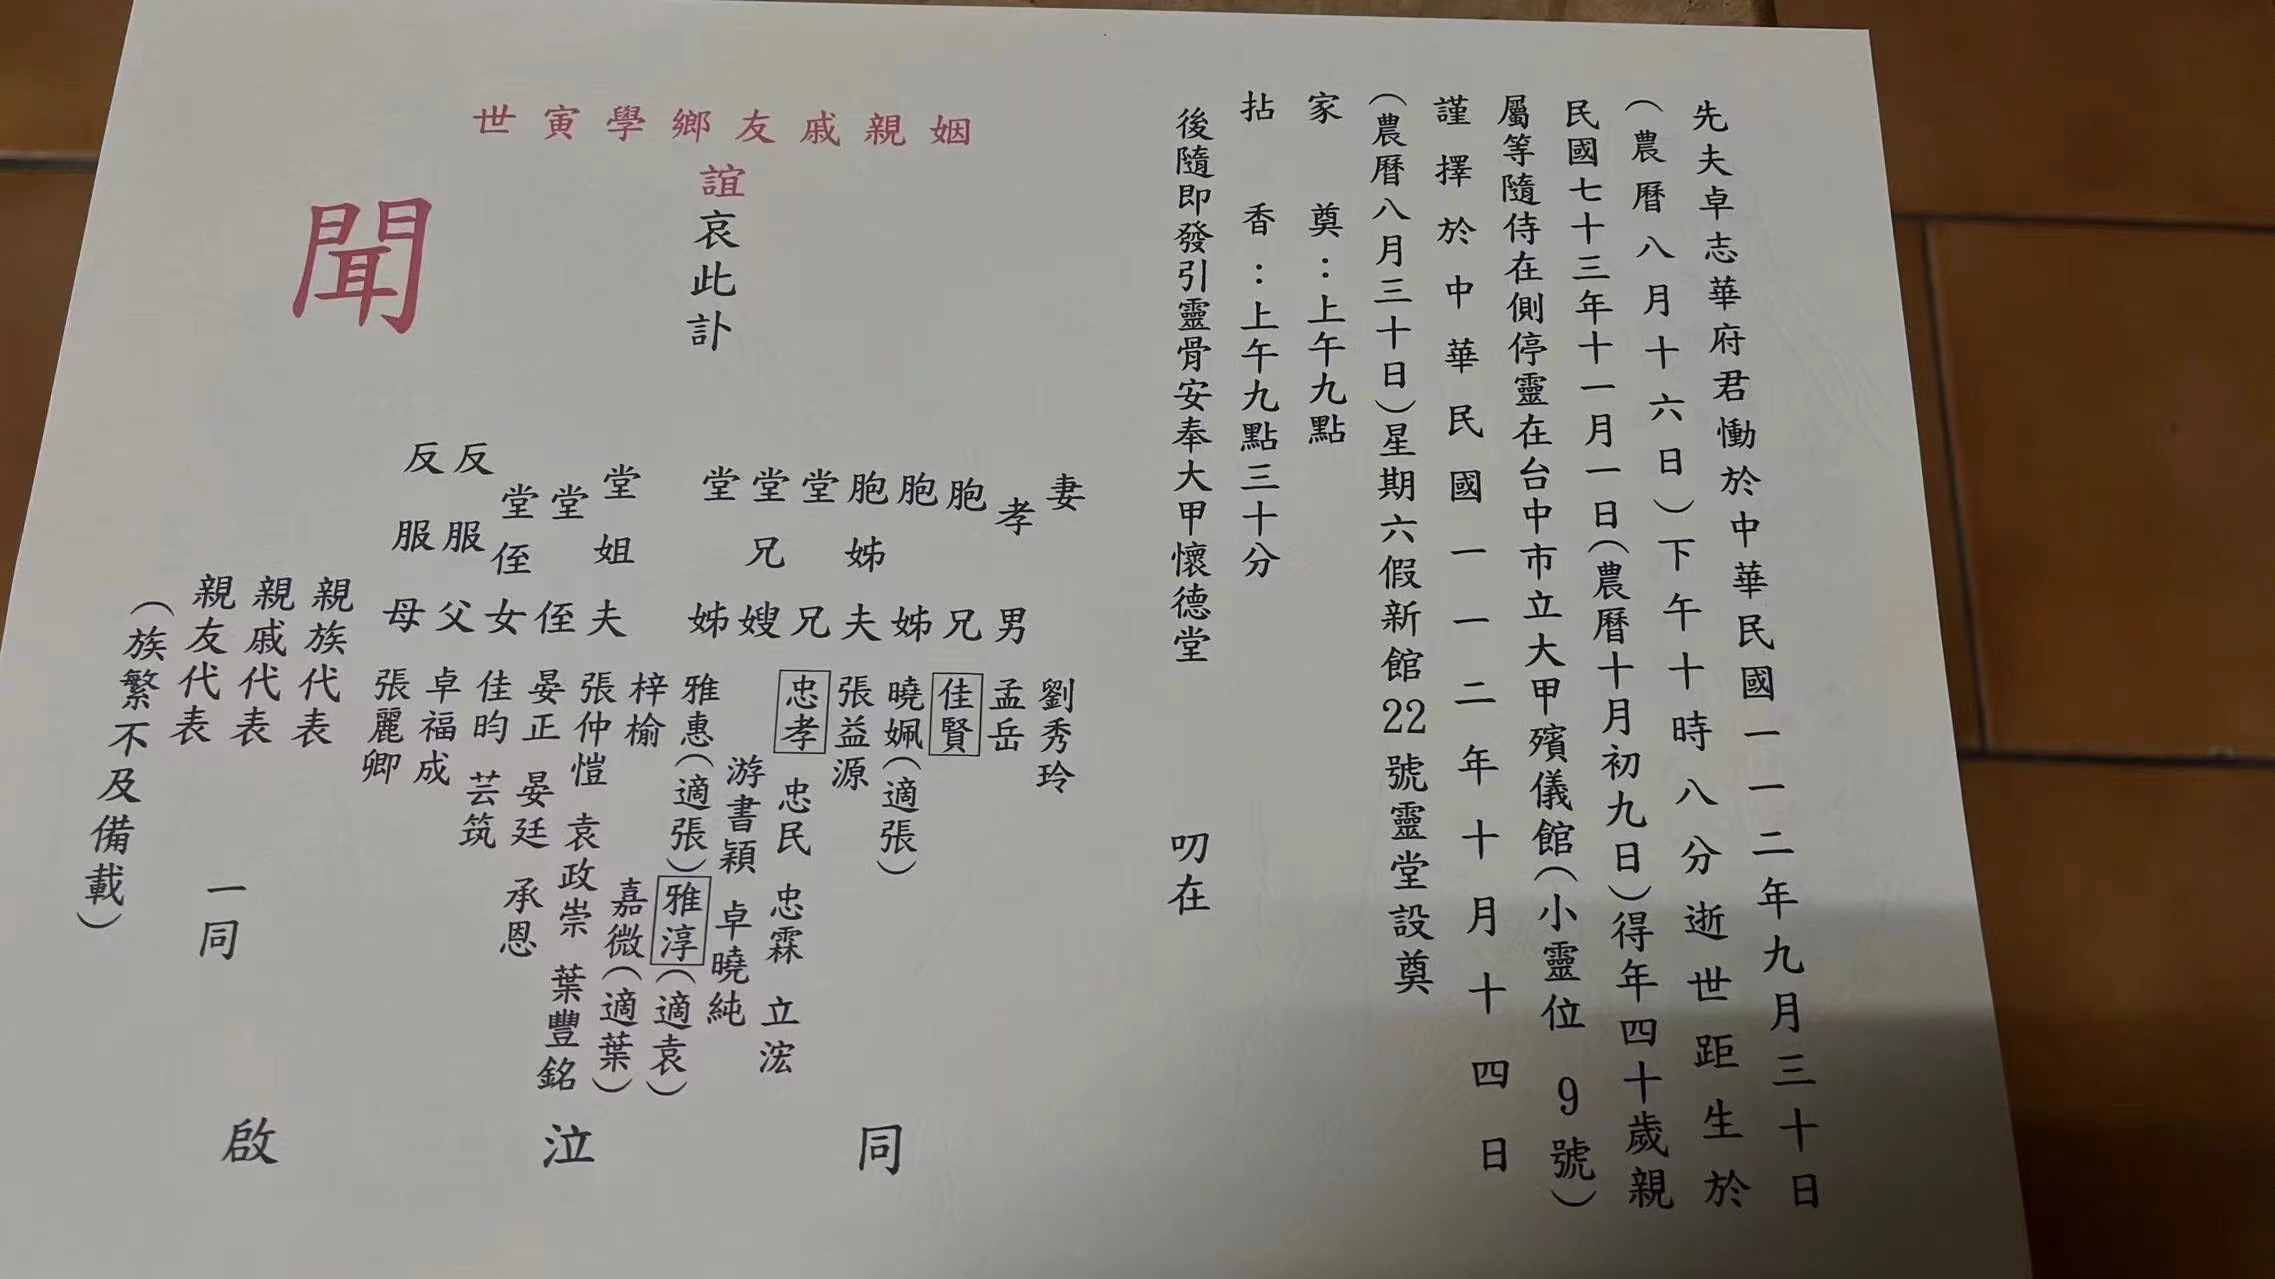 先夫卓志華府君慟於中華民國一一二年九月三十日
（農曆八月十六日）下午十時八分逝世距生於
民國七十三年十一月一日（農曆十月初九日）得年四十歲親
屬等隨侍在側停靈在台中市立大甲殯儀館（小靈位 9號）
謹擇於中華民國一一二年十月十四日
（農曆八月三十日）星期六假新館22號靈堂設奠
家奠：上午九點
拈香：上午九點三十分
後隨即發引靈骨安奉大甲懷德堂
叨在
姻親戚友鄉學寅世
誼哀此訃
聞
妻 劉秀玲
孝男 孟岳
胞兄 佳賢
胞姊 曉姵（適張）
胞姊夫 張益源
堂兄 忠孝 忠民 忠霖 立浤
堂兄嫂 游書穎 卓曉純
堂姊 雅惠（適張） 雅淳（適袁）
梓榆 嘉微（適葉）
堂姐夫 張仲愷 袁政崇 葉豐銘
堂侄 晏正 晏廷 承恩
堂侄女 佳昀 芸筑
反服父 卓福成
反服母 張麗卿
親族代表
親戚代表
親友代表
一同
（族繁不及備載）
同泣啟